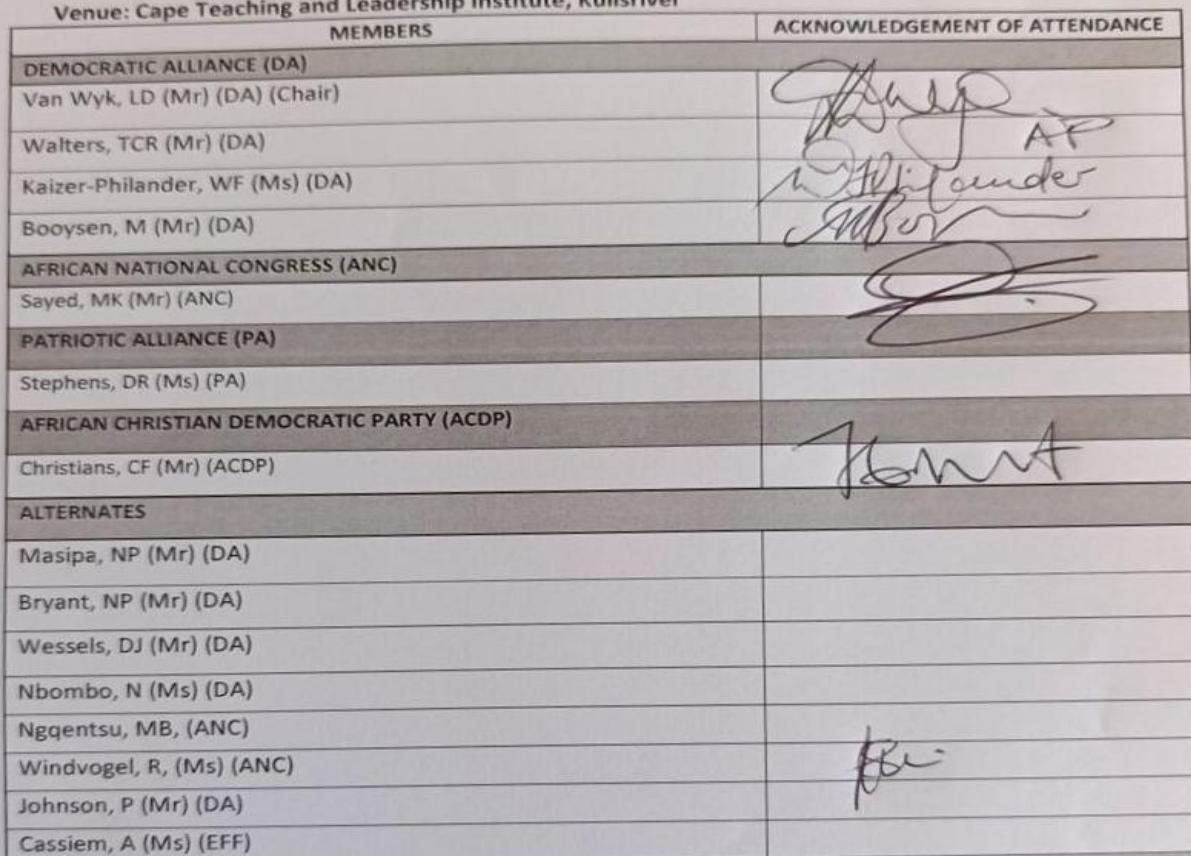 Venue: Cape Teaching and Leadership Institute, Kuilsriver
MEMBERS ACKNOWLEDGEMENT OF ATTENDANCE
DEMOCRATIC ALLIANCE (DA)
Van Wyk, LD (Mr) (DA) (Chair)
Walters, TCR (Mr) (DA) AP
Kaizer-Philander, WF (Ms) (DA) Philander
Booysen, M (Mr) (DA)
AFRICAN NATIONAL CONGRESS (ANC)
Sayed, MK (Mr) (ANC)
PATRIOTIC ALLIANCE (PA)
Stephens, DR (Ms) (PA)
AFRICAN CHRISTIAN DEMOCRATIC PARTY (ACDP)
Christians, CF (Mr) (ACDP)
ALTERNATES
Masipa, NP (Mr) (DA)
Bryant, NP (Mr) (DA)
Wessels, DJ (Mr) (DA)
Nbombo, N (Ms) (DA)
Ngqentsu, MB, (ANC)
Windvogel, R, (Ms) (ANC)
Johnson, P (Mr) (DA)
Cassiem, A (Ms) (EFF)